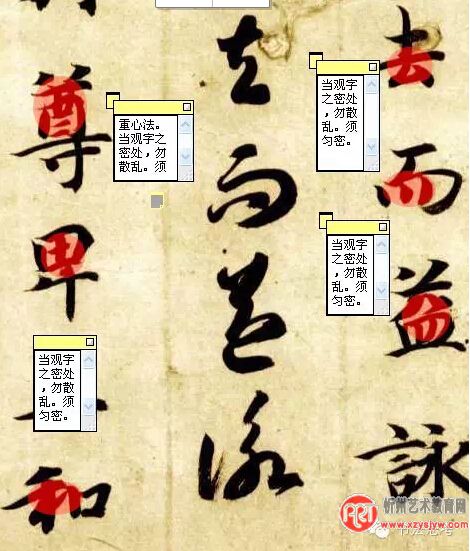 去而益詠
去而益詠
尊卑和
当观字
之密处
，勿散
乱。须
匀密。
当观字
之密处
，勿散
乱。须
匀密。
重心法。
当观字之
密处，勿
散乱。须
当观字
之密处
，勿散
乱。须
匀密。
忻州艺术教育网
www.xzysjyw.com